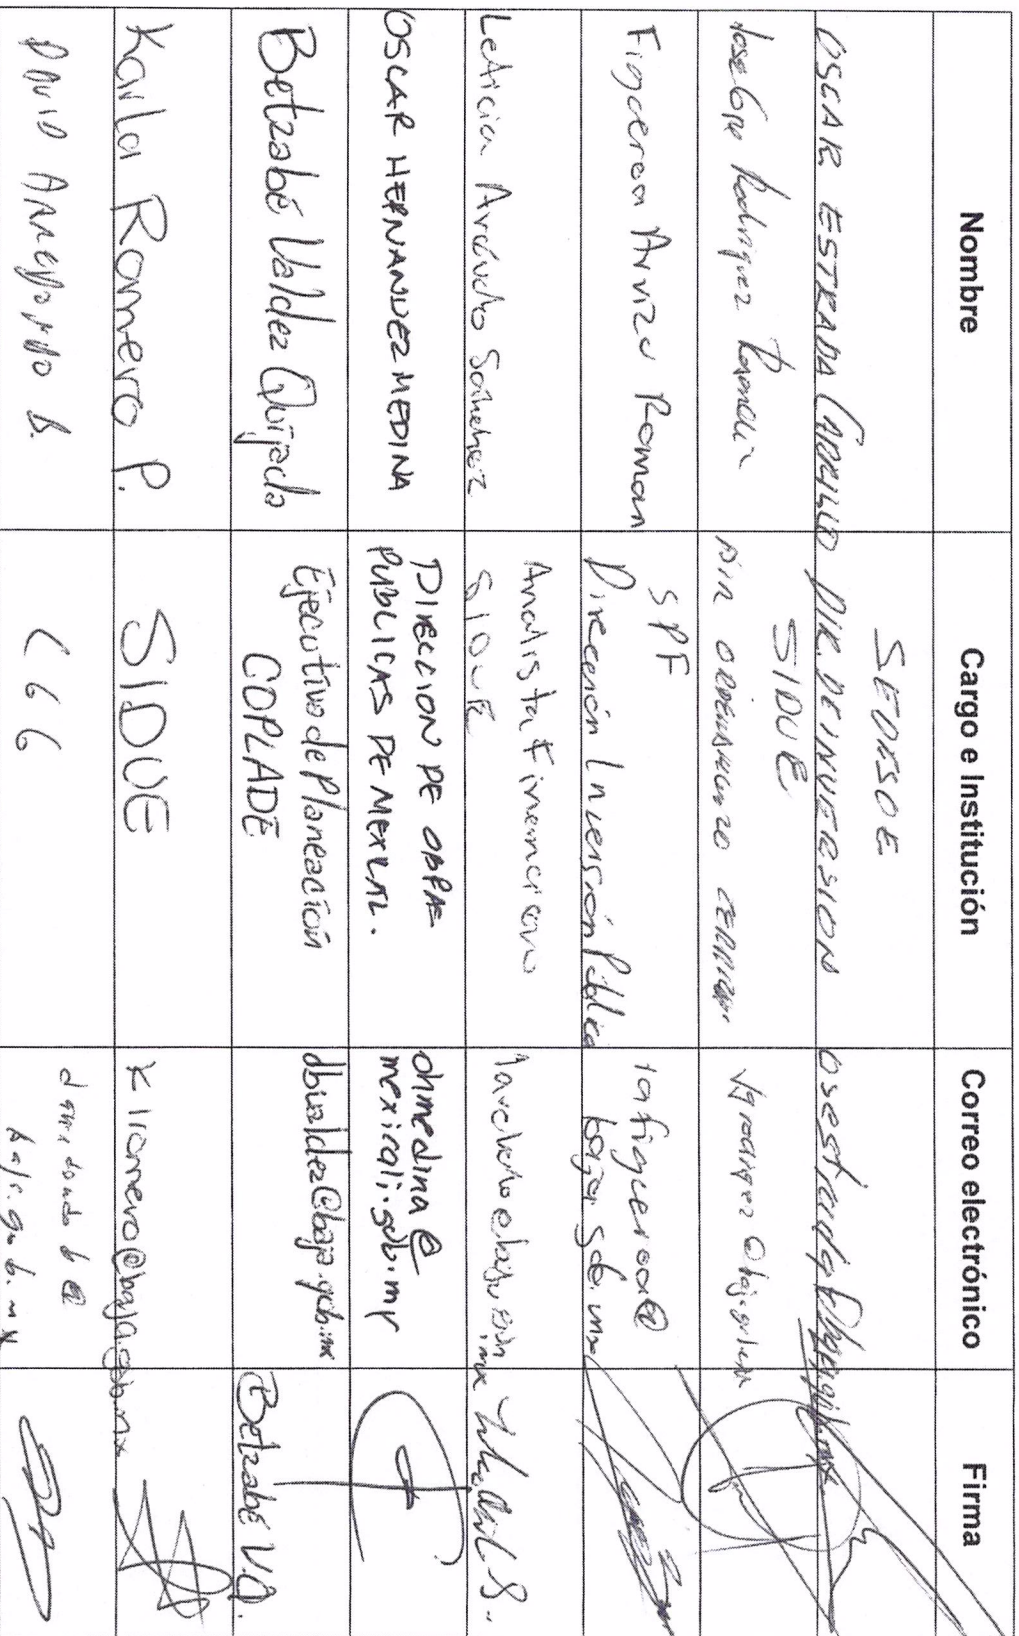 Nombre
Cargo e Institución
Correo electrónico
Firma
OSCAR ESTRADA CARRILLO
SEDESOE
DIR DE INVERSION
Rodriguez
SIDUE
DIR ORDENAMIENTO
Figueroa Arvizu Roman
SPF
Dirección Inversión Pública
rafigueroa@
baja.gob.mx
Leticia Arévalo Sánchez
Analista Financiero
SIDUE
OSCAR HERNANDEZ MEDINA
DIRECCION DE OBRAS
PUBLICAS DE MEXICALI.
ohmedina@
mexicali.gob.mx
Betzabé Valdez Quijada
Ejecutivo de Planeación
COPLADE
dbvaldez@baja.gob.mx
Betzabé V.Q.
Karla Romero P.
SIDUE
kiromero@baja.gob.mx
DAVID ARREDONDO B.
@
baja.gob.mx